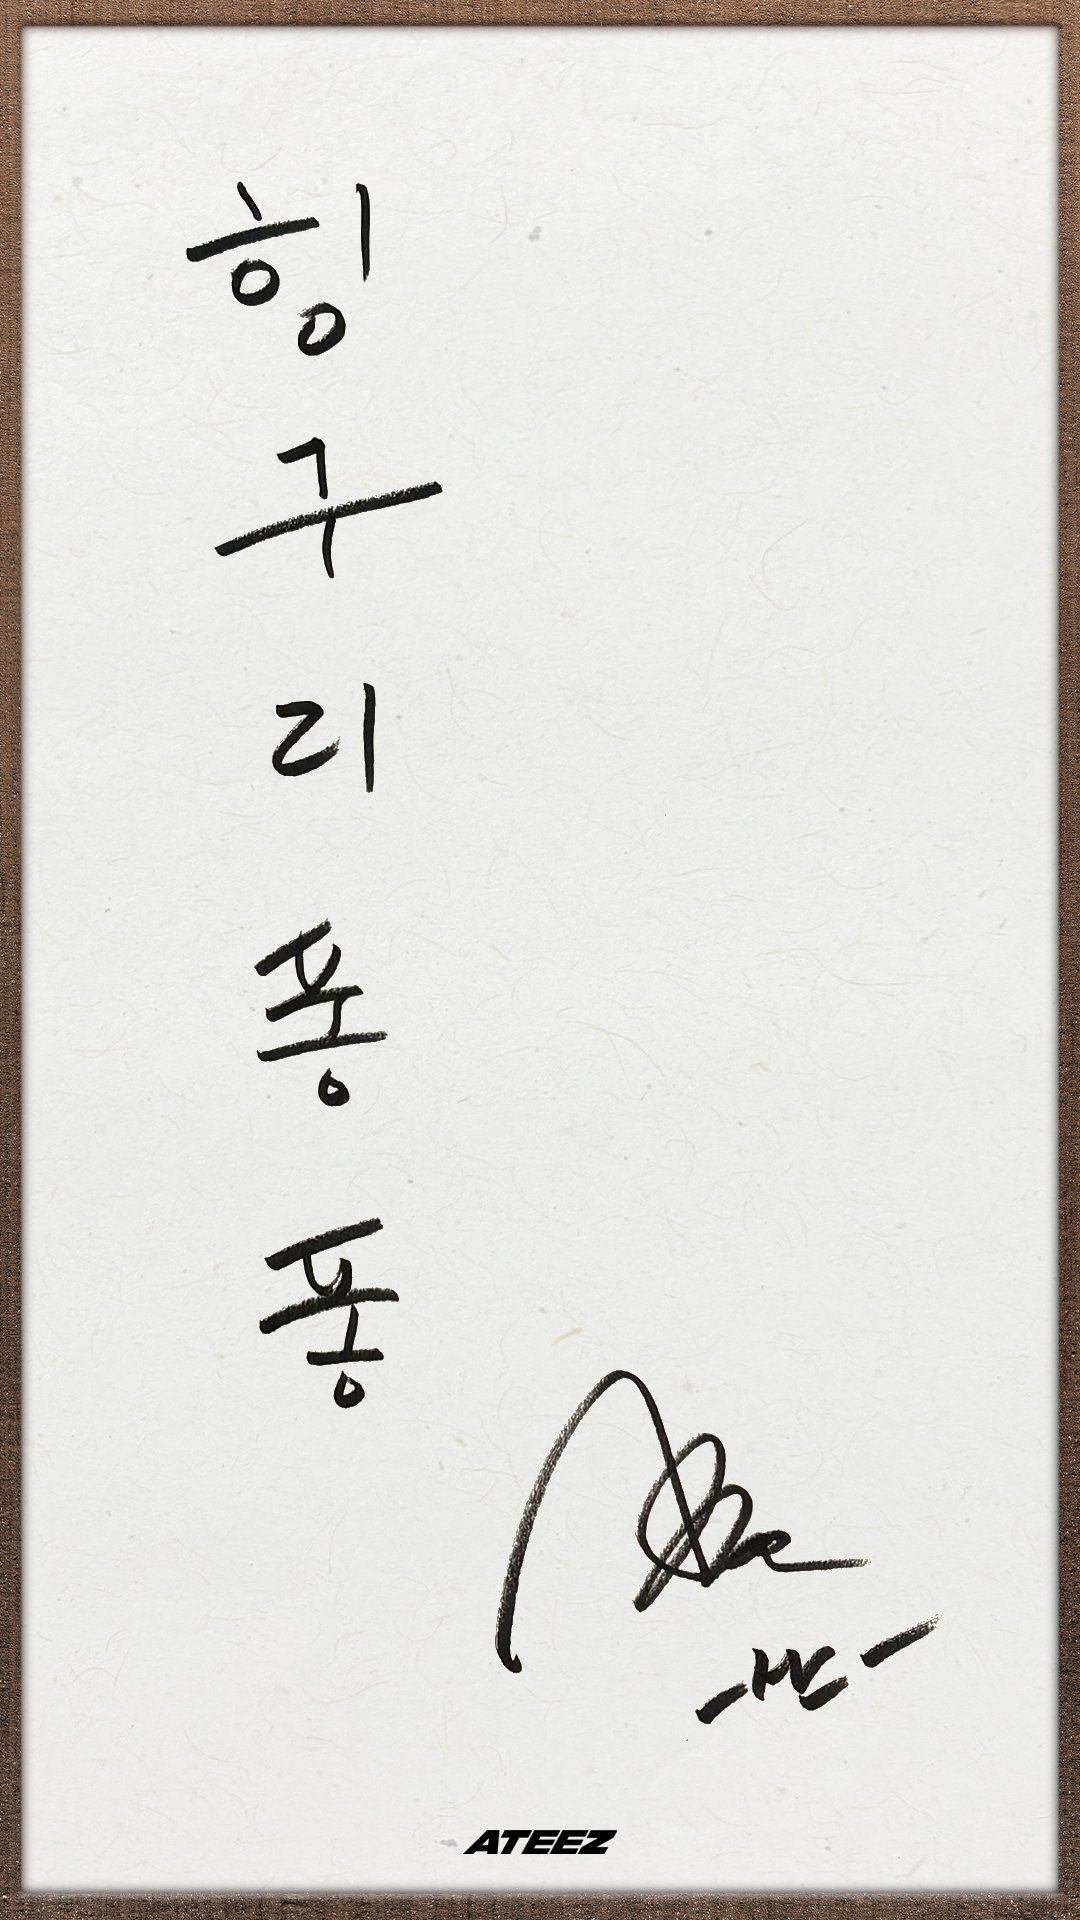 힝
구
리
퐁
퐁
-산-
ATEEZ